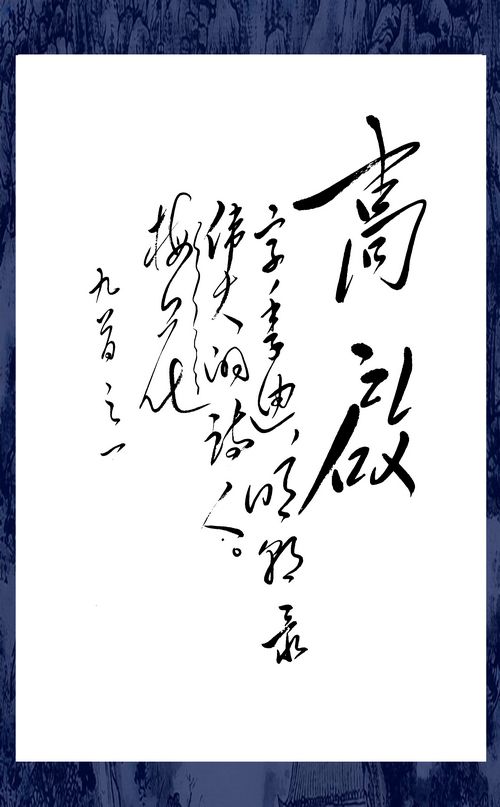 高啟
字、季迪、明朝最
伟大的詩人。
梅花
九首之一